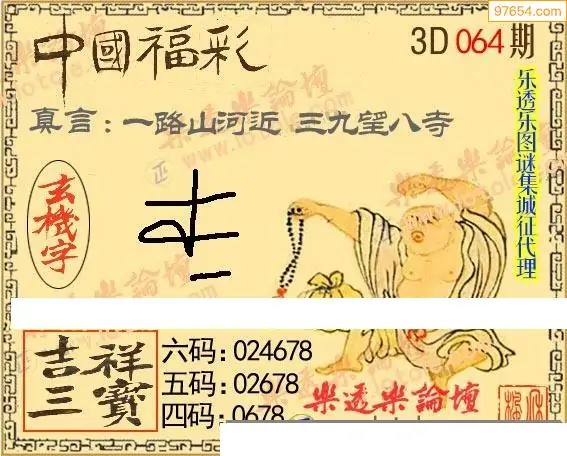 97654.com
中國福彩
3D 064 期
真言：一路山河近 三九望八寺
玄機字
乐透乐图谜集城征代理
吉祥三寳
六码：024678
五码：02678
四码：0678
樂透樂論壇